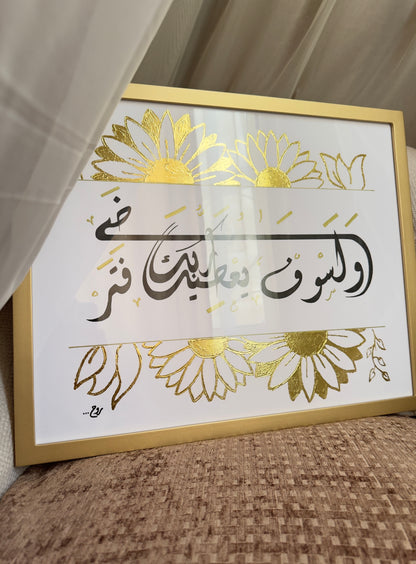 ولسوف يعطيك ربك فترضى
روح...